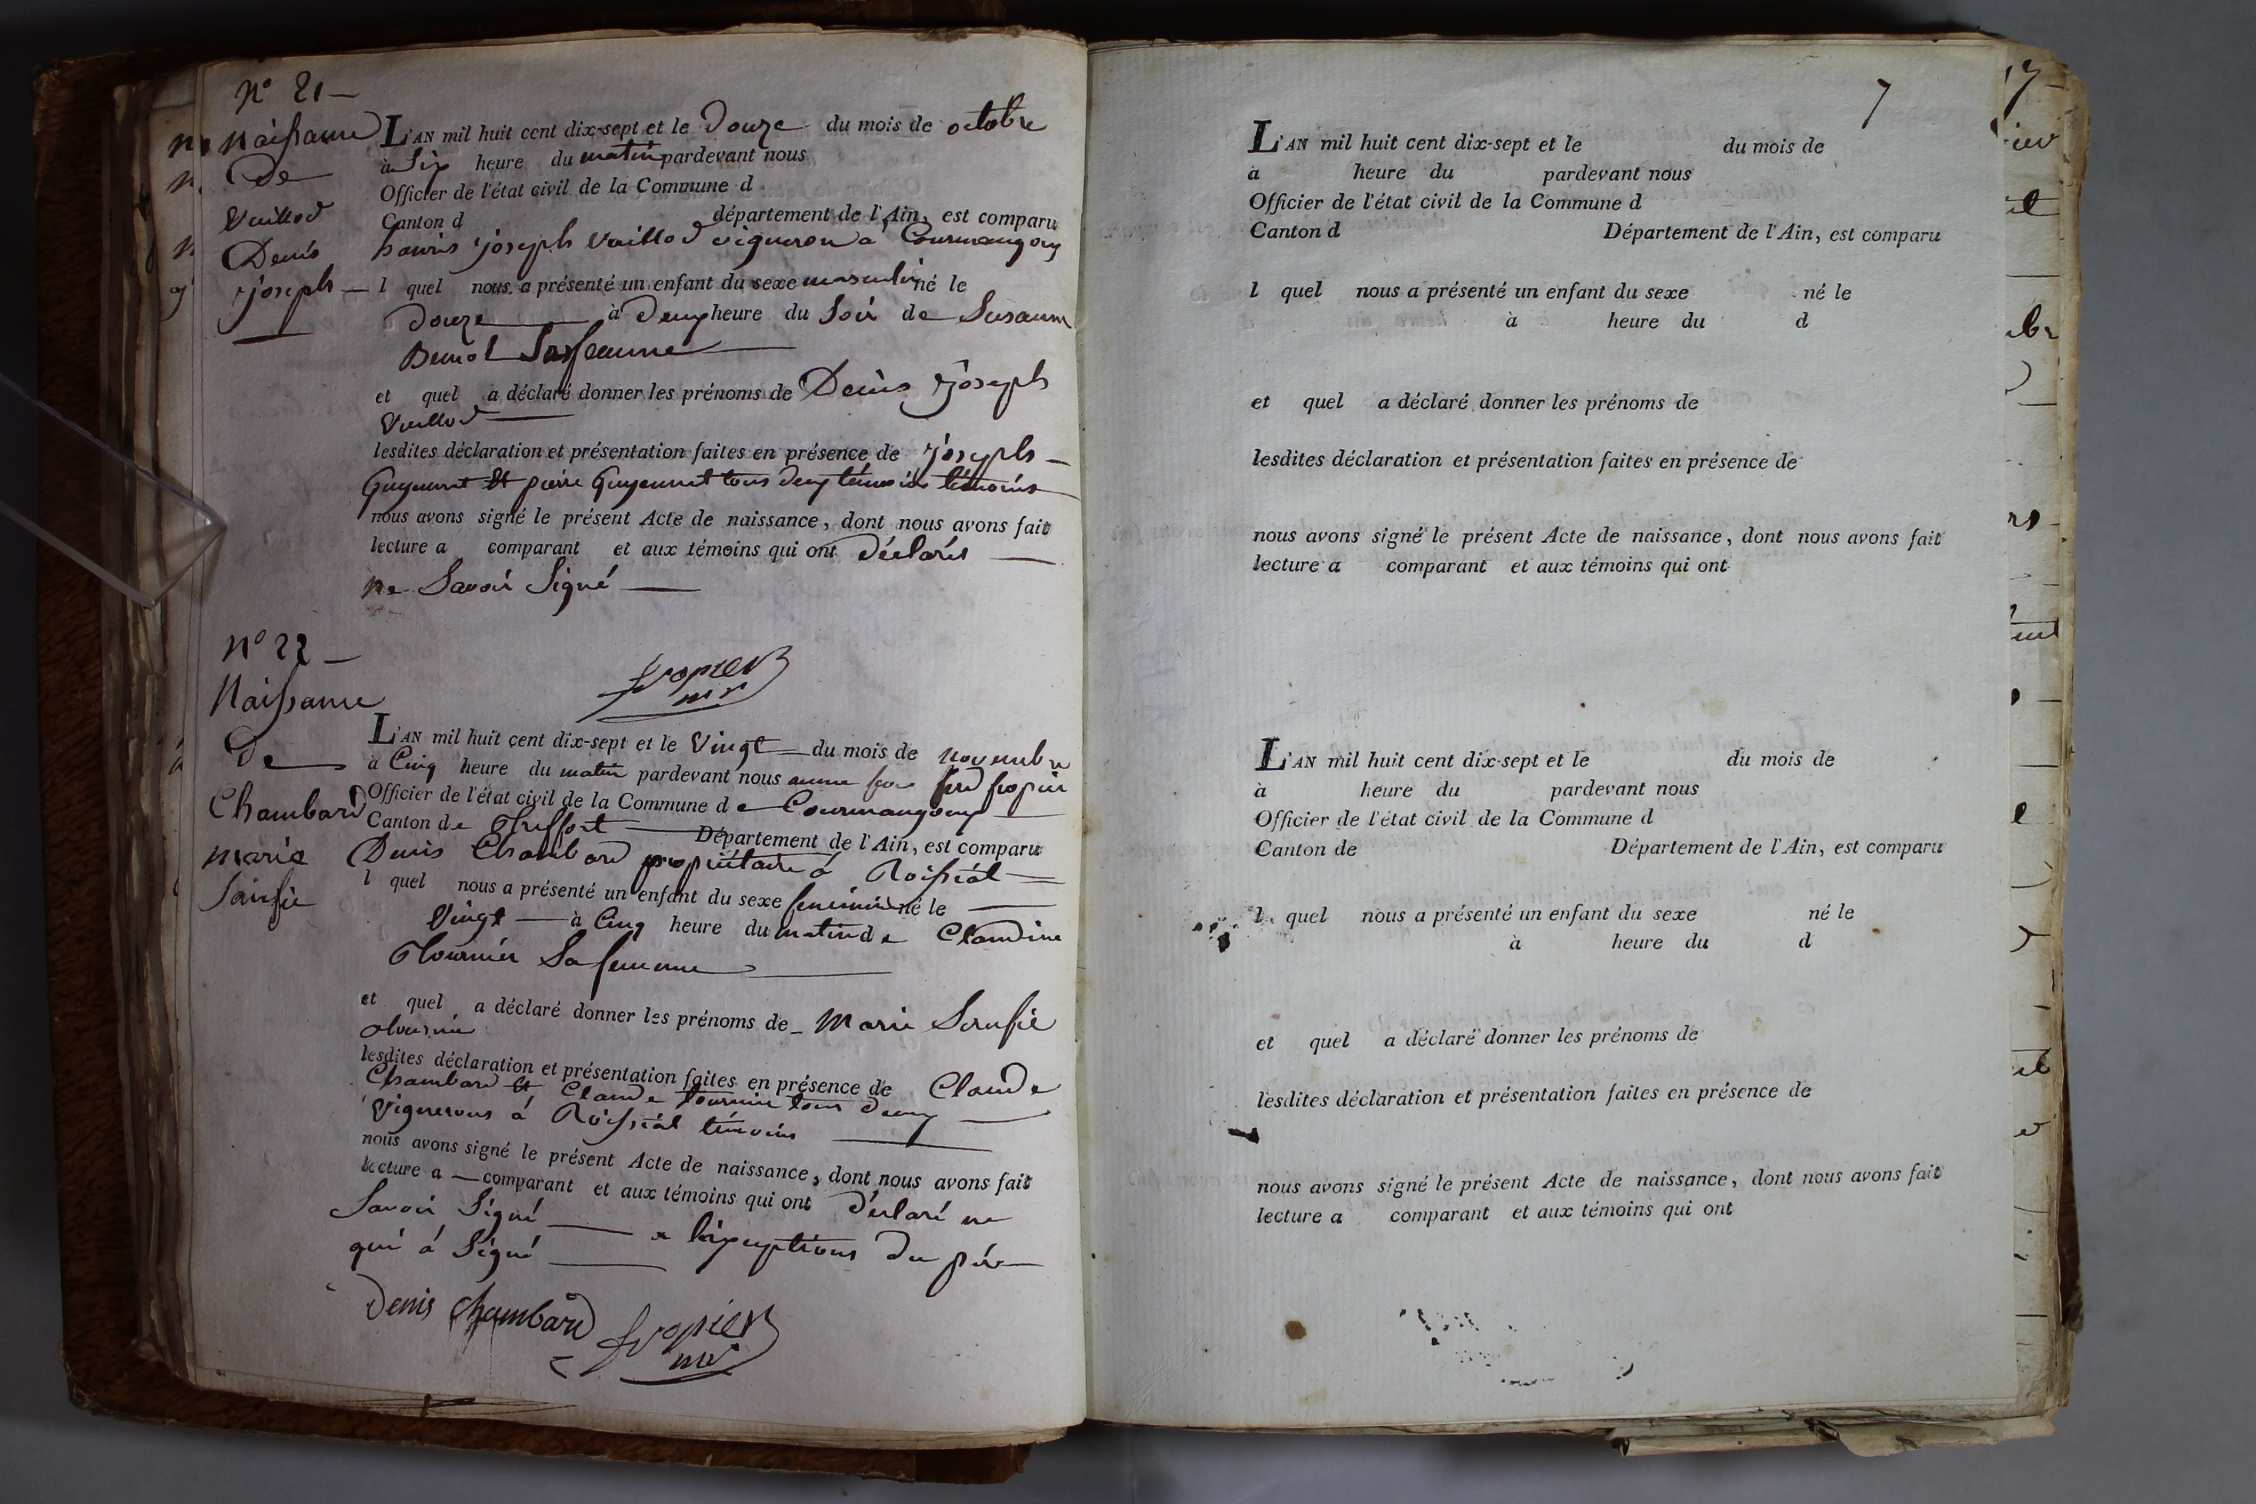 N° 21
Naissance
De
Vuillod
Denis
joseph
L'AN mil huit cent dix-sept et le Douze du mois de octobre
à Six heure du matin pardevant nous
Officier de l'état civil de la Commune d
Canton d département de l'Ain, est comparu
joseph Vuillod vigneron a Courmangoux
l quel nous a présenté un enfant du sexe masculin né le
douze à Deux heure du Soir de Susanne
Benoi Sa femme
et quel a déclaré donner les prénoms de Denis joseph
Vuillod
lesdites déclaration et présentation faites en présence de joseph
Guyennet Et pierre Guyennet tous deux témoins
nous avons signé le présent Acte de naissance, dont nous avons fait
lecture a comparant et aux témoins qui ont déclarés
ne Savoir Signé
fropier
N° 22
Naissance
De
Chambard
marie
L'AN mil huit cent dix-sept et le Vingt du mois de novembre
à Cinq heure du matin pardevant nous fropier
Officier de l'état civil de la Commune de Courmangoux
Canton de Treffort Département de l'Ain, est comparu
Denis Chambard propriétaire á Roissiat
l quel nous a présenté un enfant du sexe feminin né le
Vingt à Cinq heure du matin de Claudine
Tournier Sa femme
et quel a déclaré donner les prénoms de marie
lesdites déclaration et présentation faites en présence de Claude
Chambard et Claude tournier tous deux
Vignerons á Roissiat témoins
nous avons signé le présent Acte de naissance, dont nous avons fait
lecture a comparant et aux témoins qui ont déclaré ne
Savoir Signé a l'exeptions du pére
qui á Signé
Denis Chambard fropier
7
L'AN mil huit cent dix-sept et le du mois de
à heure du pardevant nous
Officier de l'état civil de la Commune d
Canton d Département de l'Ain, est comparu
l quel nous a présenté un enfant du sexe né le
à heure du d
et quel a déclaré donner les prénoms de
lesdites déclaration et présentation faites en présence de
nous avons signé le présent Acte de naissance, dont nous avons fait
lecture a comparant et aux témoins qui ont
L'AN mil huit cent dix-sept et le du mois de
à heure du pardevant nous
Officier de l'état civil de la Commune d
Canton de Département de l'Ain, est comparu
l quel nous a présenté un enfant du sexe né le
à heure du d
et quel a déclaré donner les prénoms de
lesdites déclaration et présentation faites en présence de
nous avons signé le présent Acte de naissance, dont nous avons fait
lecture a comparant et aux témoins qui ont